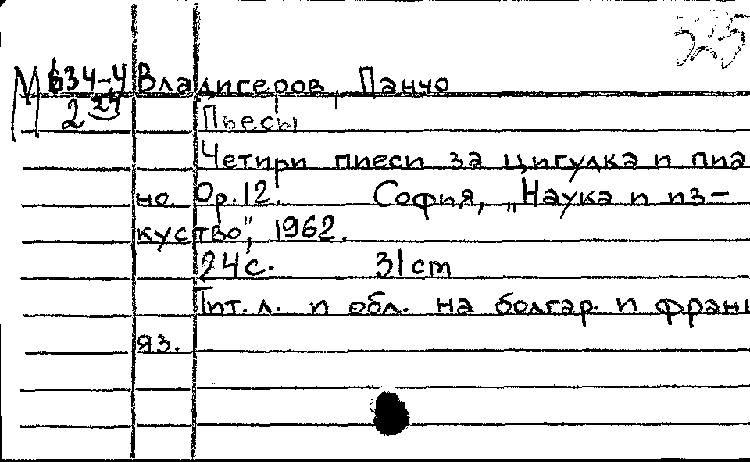 525
М 634-4 Владигеров, Панчо
2 27 Пьесы
Четири пиеси за цигулка и пиа
но Op.12. София, „Наука и из-
куство", 1962.
24 с. 31 cm
Тит. л. и обл. на болгар. и франц
яз.